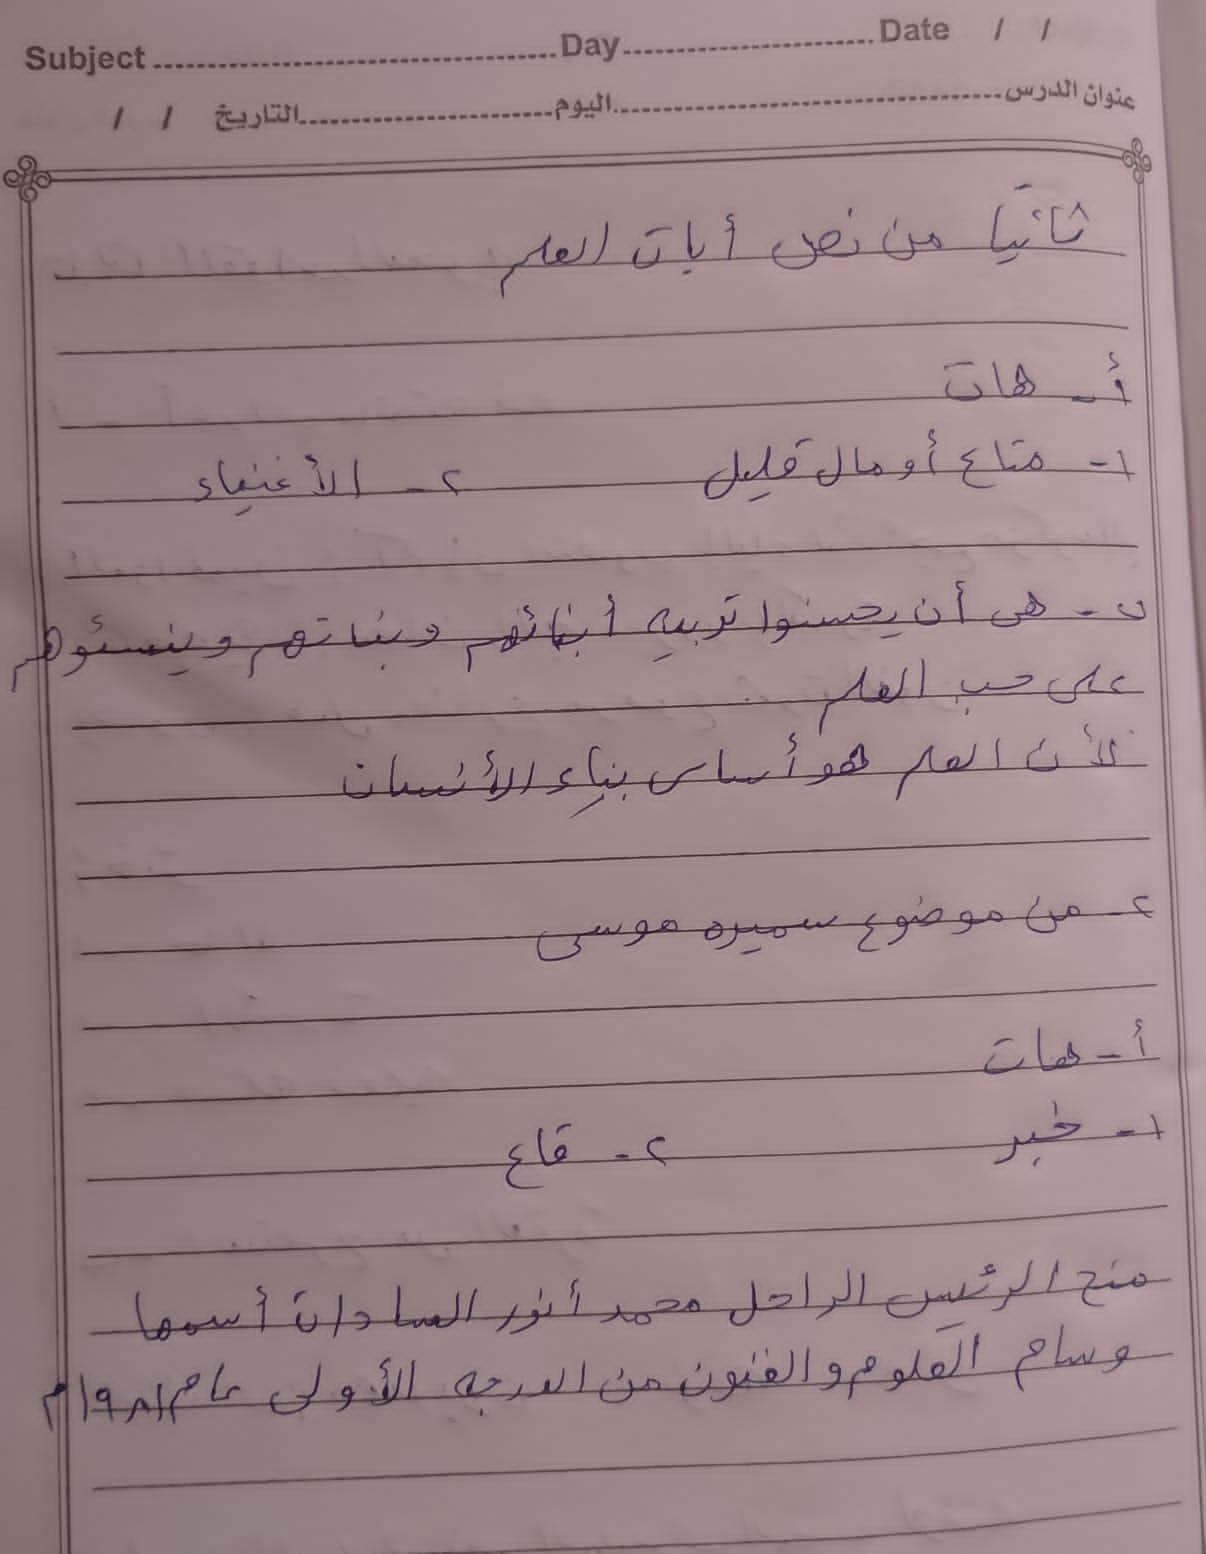 Subject ........ Day ........ Date / /
عنوان الدرس ........ اليوم ........ التاريخ / /
ثانيا من نص أيات العلم
أ - هات
١- متاع أو مال قليل ٢- الأغنياء
ب - هى أن يحسنوا تربيه أبنائهم وبناتهم وينسئوهم
على حب العلم
لأن العلم هو أساس بناء الأنسان
٢- من موضوع سميره موسى
أ - هات
١- خبر ٢- قاع
منح الرئيس الراحل محمد أنور السادات أسمها
وسام العلوم والفنون من الدرجه الأولى عام ١٩٨١م